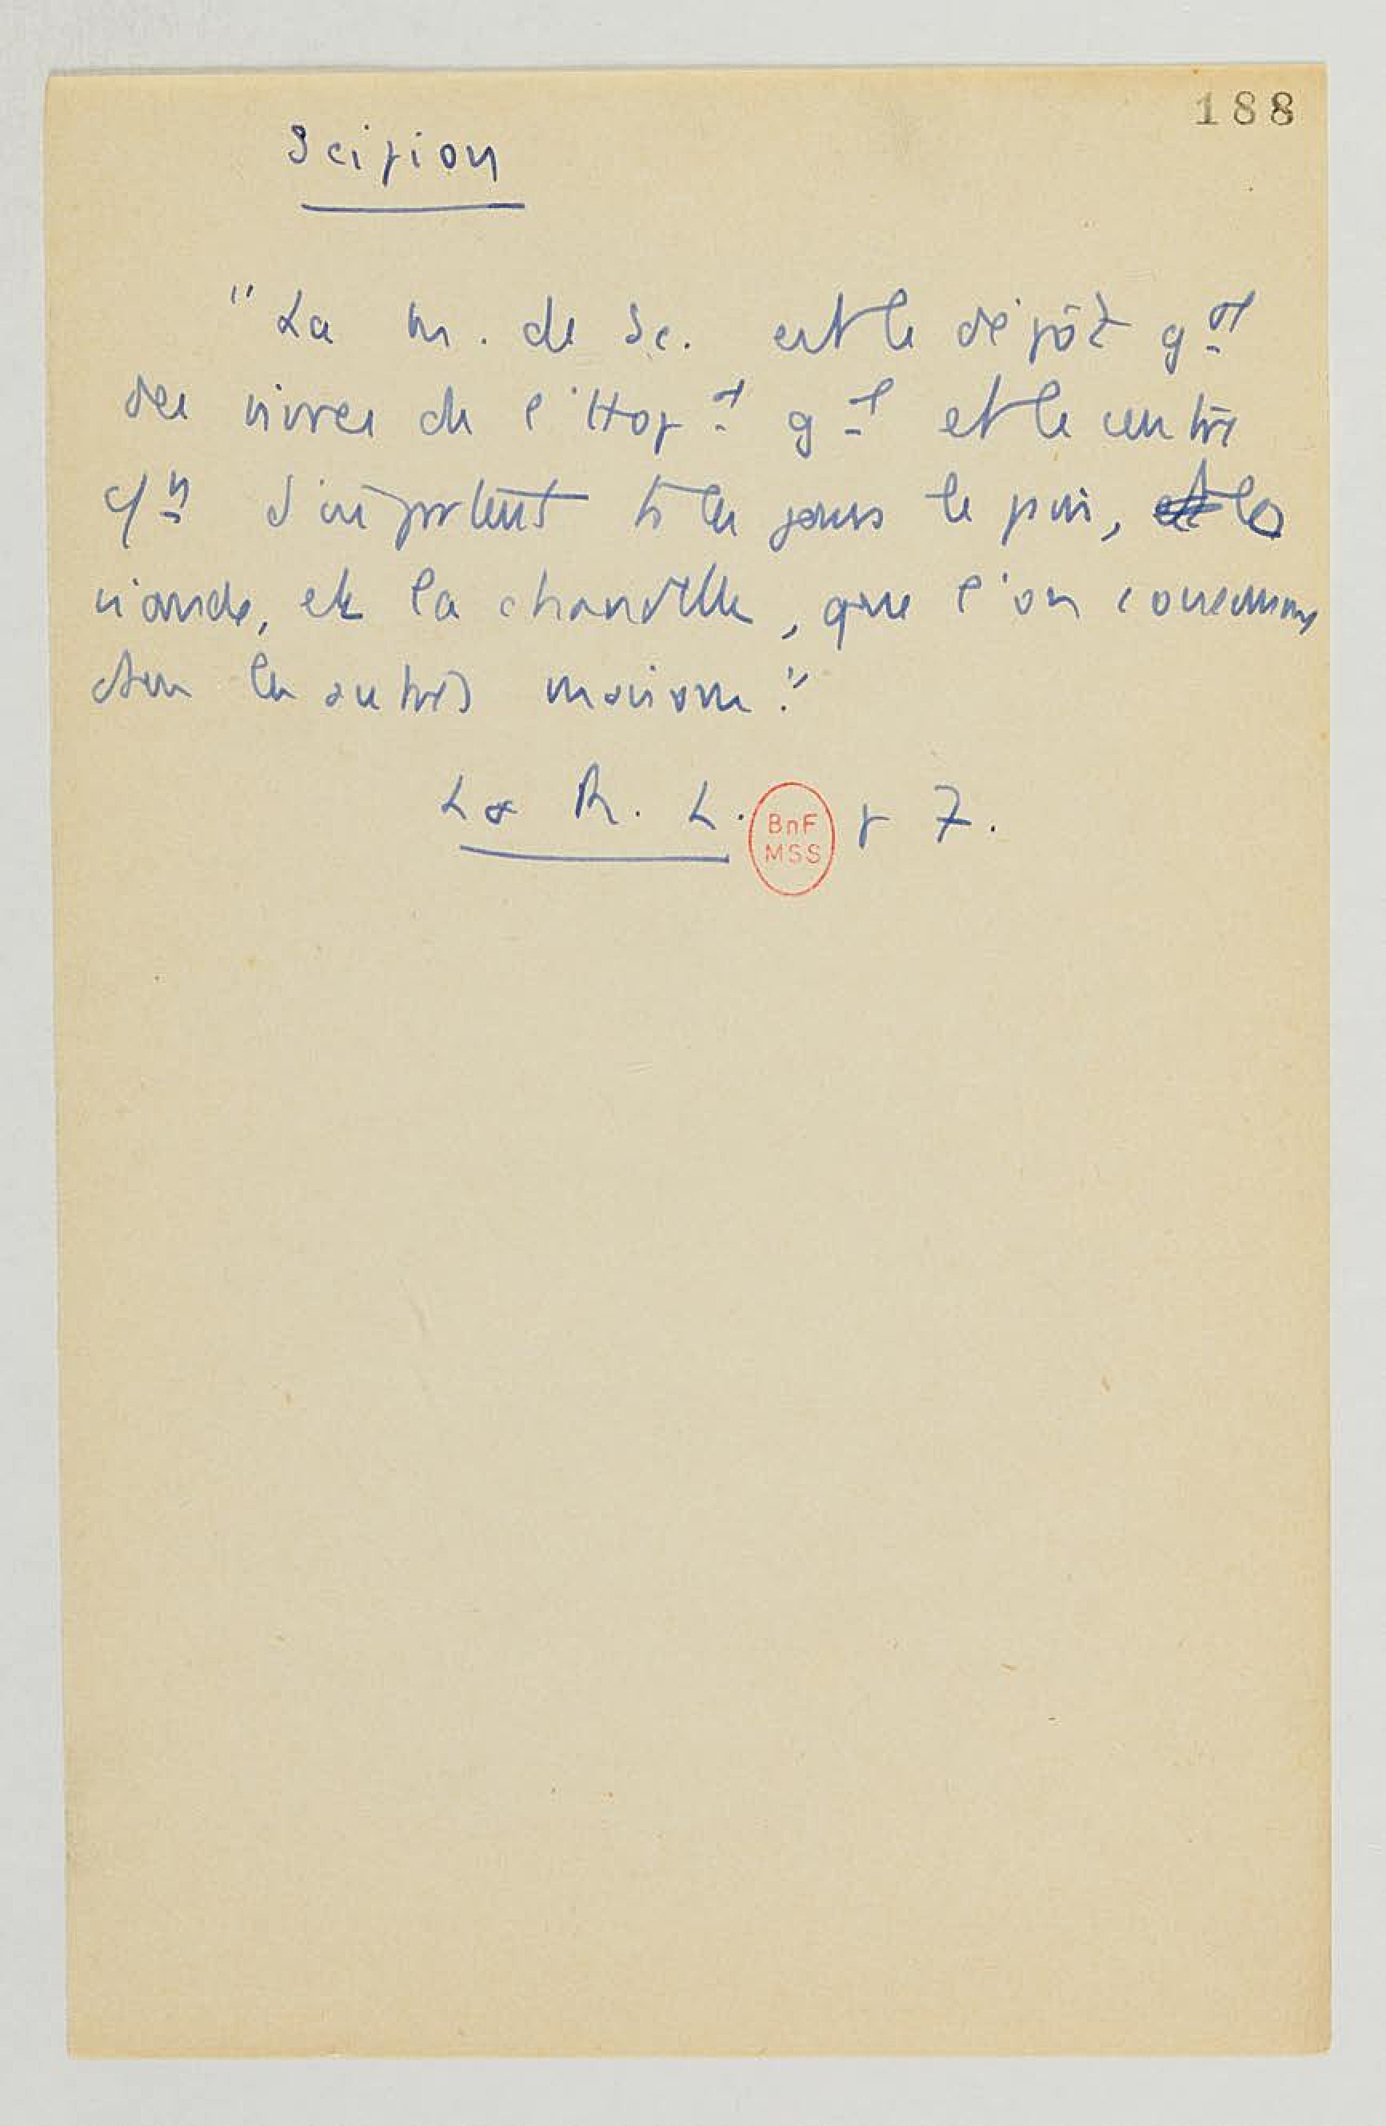 188
Scipion
"La m. de Sc. est le dépôt gal
des vivres de l'Hopal gal et le centre
d'ou s'importent ts les jours le pain, la
viande, et la chandelle, que l'on consomme
dans les autres maisons."
La R. L. p 7.
BnF
MSS